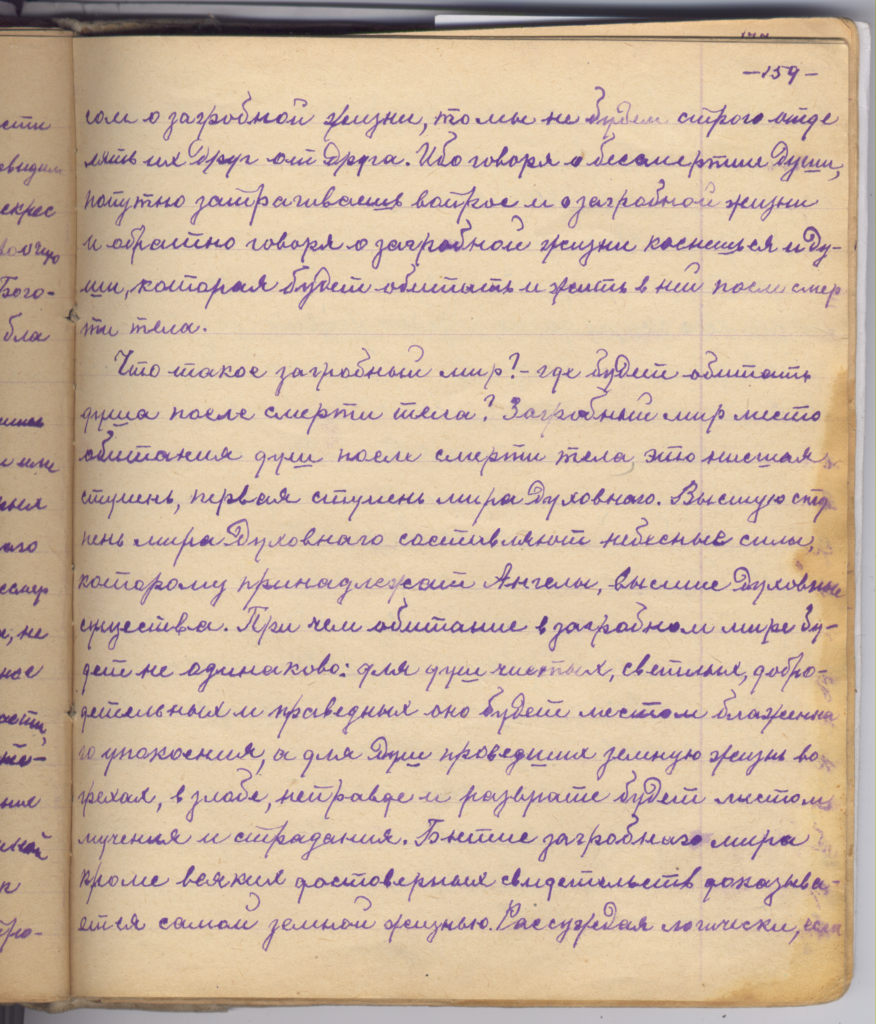 -159-
сом о загробной жизни, то мы не будем строго отде
лять их друг от друга. Ибо говоря о бессмертии Души,
попутно затрагиваешь вопрос и о загробной жизни
и обратно говоря о загробной жизни коснешься и Ду-
ши, которая будет обитать и жить в ней после смер
ти тела.
Что такое загробный мир? - где будет обитать
душа после смерти тела? Загробный мир место
обитания душ после смерти тела, это низшая
ступень, первая ступень мира Духовного. Высшую сту
пень мира Духовнаго составляют небесные силы,
которому принадлежат Ангелы, высшие Духовные
существа. При чем обитание в загробном мире бу-
дет не одинаково: для душ чистых, светлых, добро-
детельных и праведных оно будет местом блаженна
го упокоения, а для Душ проведших земную жизнь во
грехах, в злобе, неправде и разврате будет местом
мучения и страдания. Бытие загробнаго мира
кроме всяких достоверных свидетельств доказыва-
ется самой земной жизнью. Рассуждая логически, если
сти
екрес
Бого-
бла
или
ных
аго
смер
, не
ное
ние
к